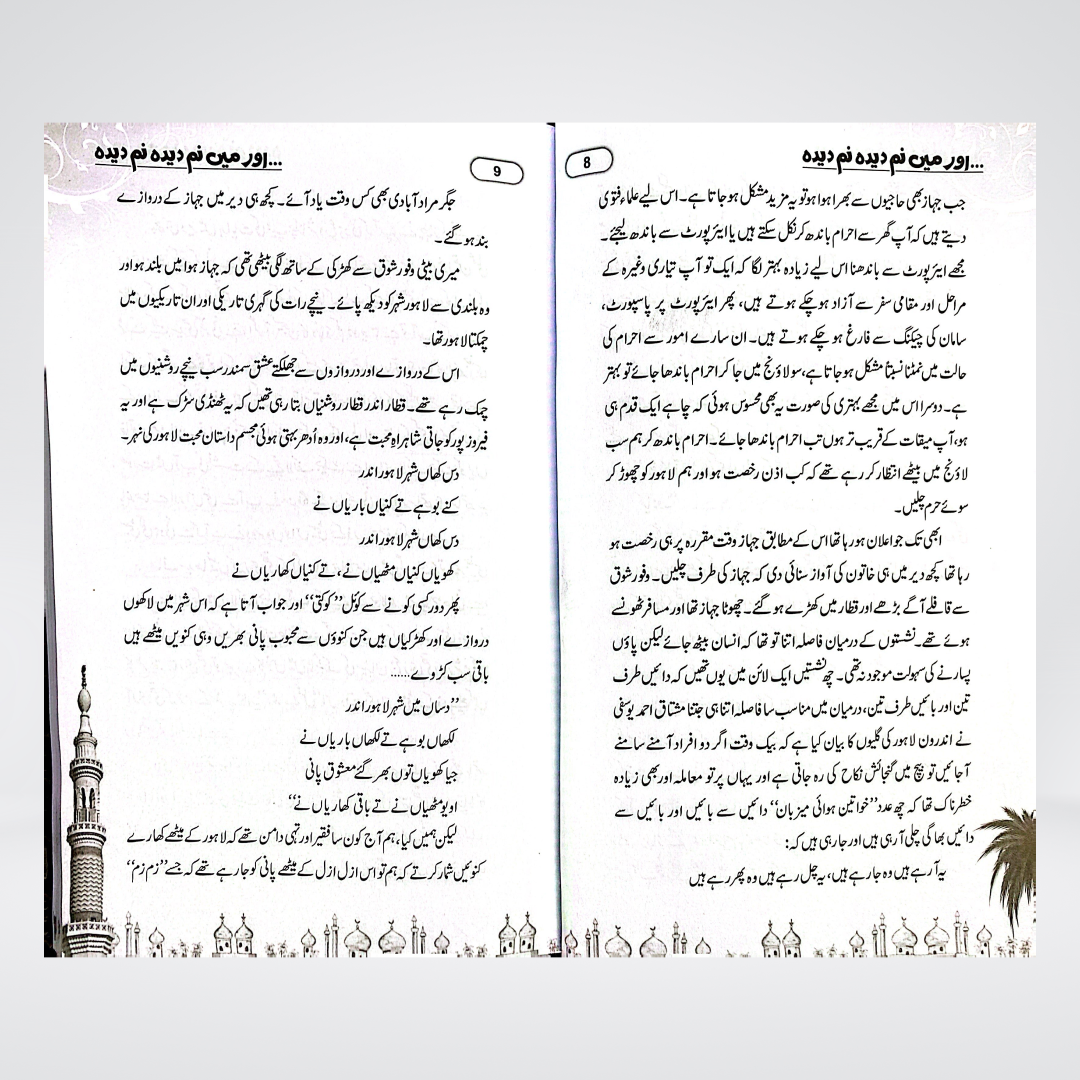 ...اور میں نم دیدہ نم دیدہ
8
جب جہاز بھی حاجیوں سے بھرا ہوا ہو تو یہ مزید مشکل ہو جاتا ہے۔ اس لیے علماء فتویٰ
دیتے ہیں کہ آپ گھر سے احرام باندھ کر نکل سکتے ہیں یا ایئر پورٹ سے باندھ لیجئے۔
مجھے ایئر پورٹ سے باندھنا اس لیے زیادہ بہتر لگا کہ ایک تو آپ تیاری وغیرہ کے
مراحل اور مقامی سفر سے آزاد ہو چکے ہوتے ہیں، پھر ایئر پورٹ پر پاسپورٹ،
سامان کی چیکنگ سے فارغ ہو چکے ہوتے ہیں۔ ان سارے امور سے احرام کی
حالت میں نمٹنا نسبتاً مشکل ہو جاتا ہے، سو لاؤنج میں جا کر احرام باندھا جائے تو بہتر
ہے۔ دوسرا اس میں مجھے بہتری کی صورت یہ بھی محسوس ہوئی کہ چاہے ایک قدم ہی
ہو، آپ میقات کے قریب تر ہوں تب احرام باندھا جائے۔ احرام باندھ کر ہم سب
لاؤنج میں بیٹھے انتظار کر رہے تھے کہ کب اذن رخصت ہو اور ہم لاہور کو چھوڑ کر
سوئے حرم چلیں۔
ابھی تک جو اعلان ہو رہا تھا اس کے مطابق جہاز وقت مقررہ پر ہی رخصت ہو
رہا تھا کچھ دیر میں ہی خاتون کی آواز سنائی دی کہ جہاز کی طرف چلیں۔ وفور شوق
سے قافلے آگے بڑھے اور قطار میں کھڑے ہو گئے۔ چھوٹا جہاز تھا اور مسافر ٹھونسے
ہوئے تھے۔ نشستوں کے درمیان فاصلہ اتنا تو تھا کہ انسان بیٹھ جائے لیکن پاؤں
پسارنے کی سہولت موجود نہ تھی۔ چھ نشستیں ایک لائن میں یوں تھیں کہ دائیں طرف
تین اور بائیں طرف تین، درمیان میں مناسب سا فاصلہ اتنا ہی جتنا مشتاق احمد یوسفی
نے اندرون لاہور کی گلیوں کا بیان کیا ہے کہ بیک وقت اگر دو افراد آمنے سامنے
آ جائیں تو بیچ میں گنجائش نکاح کی رہ جاتی ہے اور یہاں پر تو معاملہ اور بھی زیادہ
خطرناک تھا کہ چھ عدد ”خواتین ہوائی میزبان“ دائیں سے بائیں اور بائیں سے
دائیں بھاگی چلی آ رہی ہیں اور جا رہی ہیں کہ:
یہ آ رہے ہیں وہ جا رہے ہیں، یہ چل رہے ہیں وہ پھر رہے ہیں
...اور میں نم دیدہ نم دیدہ
9
جگر مراد آبادی بھی کس وقت یاد آئے۔ کچھ ہی دیر میں جہاز کے دروازے
بند ہو گئے۔
میری بیٹی وفور شوق سے کھڑکی کے ساتھ لگی بیٹھی تھی کہ جہاز ہوا میں بلند ہو اور
وہ بلندی سے لاہور شہر کو دیکھ پائے۔ نیچے رات کی گہری تاریکی اور ان تاریکیوں میں
چمکتا لاہور تھا۔
اس کے دروازے اور دروازوں سے جھلکتے عشق سمندر سب نیچے روشنیوں میں
چمک رہے تھے۔ قطار اندر قطار روشنیاں بتا رہی تھیں کہ یہ ٹھنڈی سڑک ہے اور یہ
فیروز پور کو جاتی شاہراہِ محبت ہے، اور وہ اُدھر بہتی ہوئی مجسم داستان محبت لاہور کی نہر۔
دس کھاں شہر لاہور اندر
کنے بوہے تے کنیاں باریاں نے
دس کھاں شہر لاہور اندر
کھویاں کنیاں مٹھیاں نے، تے کنیاں کھاریاں نے
پھر دور کسی کونے سے کوئل ”کوکتی“ اور جواب آتا ہے کہ اس شہر میں لاکھوں
دروازے اور کھڑکیاں ہیں جن کنوؤں سے محبوب پانی بھریں وہی کنویں میٹھے ہیں
باقی سب کڑوے......
”دساں میں شہر لاہور اندر
لکھاں بوہے تے لکھاں باریاں نے
جیا کھویاں توں بھر گئے معشوق پانی
او یو مٹھیاں نے تے باقی کھاریاں نے“
لیکن ہمیں کیا، ہم آج کون سا فقیر اور تہی دامن تھے کہ لاہور کے میٹھے کھارے
کنوئیں شمار کرتے کہ ہم تو اس ازل ازل کے میٹھے پانی کو جا رہے تھے کہ جسے ”زم زم“